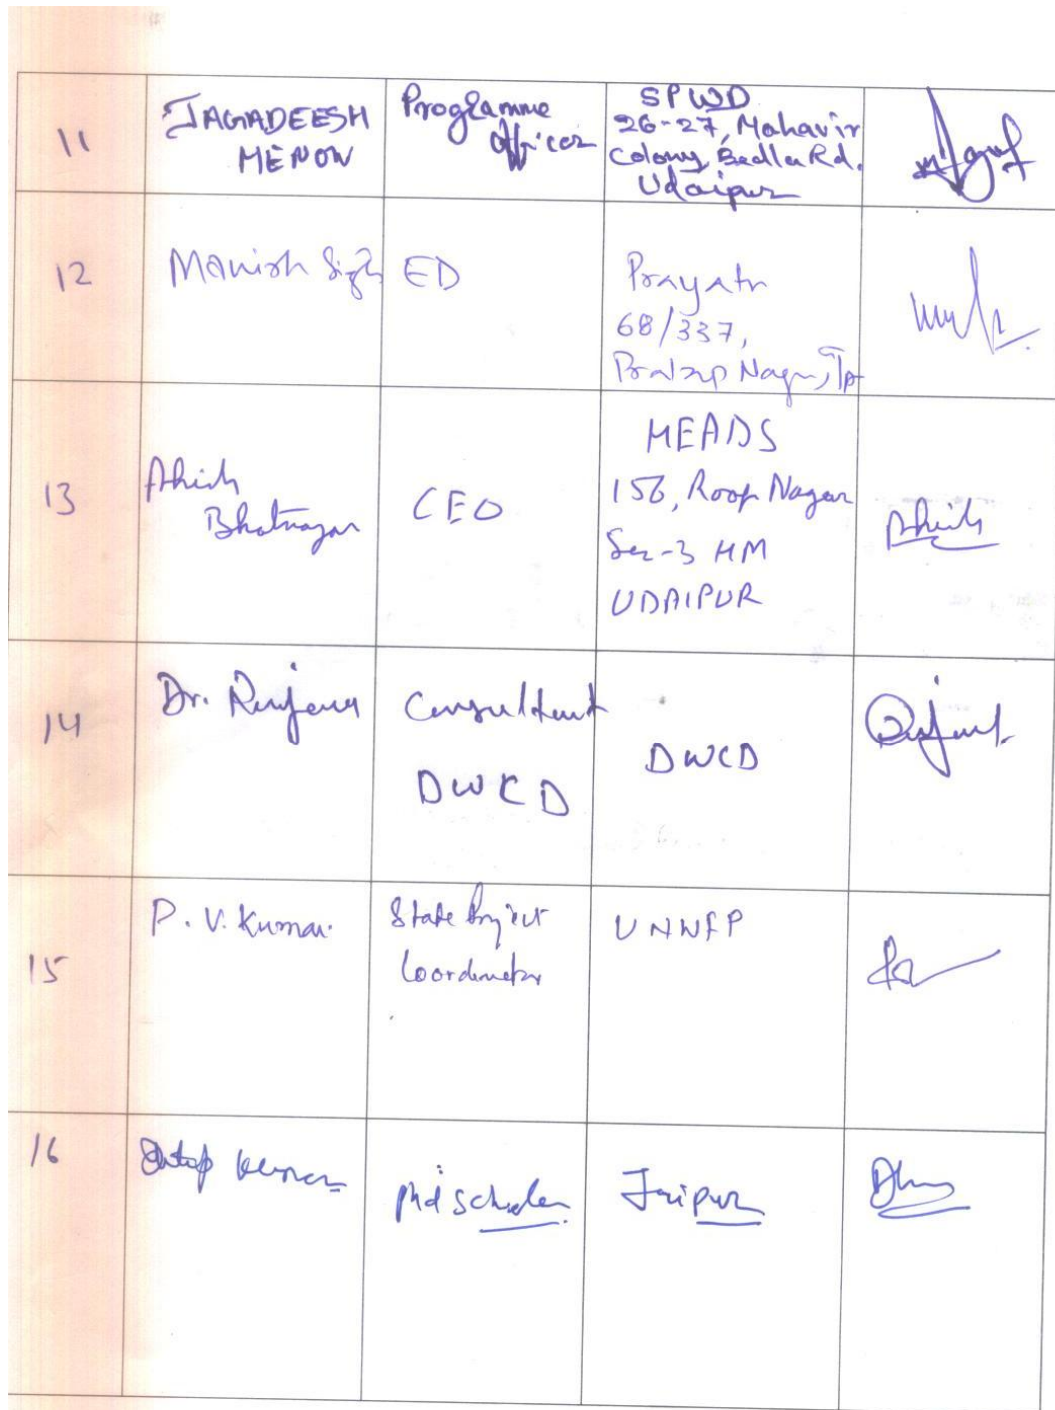 11
JAGADEESH
MENON
Programme
Officer
SPWD
26-27, Mahavir
Colony, Bedla Rd.
Udaipur
12
Manish Singh
ED
Prayatn
68/337,
Pratap Nagar, Jp
13
Ashish
Bhatnagar
CEO
HEADS
156, Roop Nagar
Sec-3 HM
UDAIPUR
Ashish
14
Dr. Ranjana
Consultant
DWCD
DWCD
15
P. V. Kumar.
State Project
Coordinator
UNWFP
16
Kumar
Phd Scholar
Jaipur